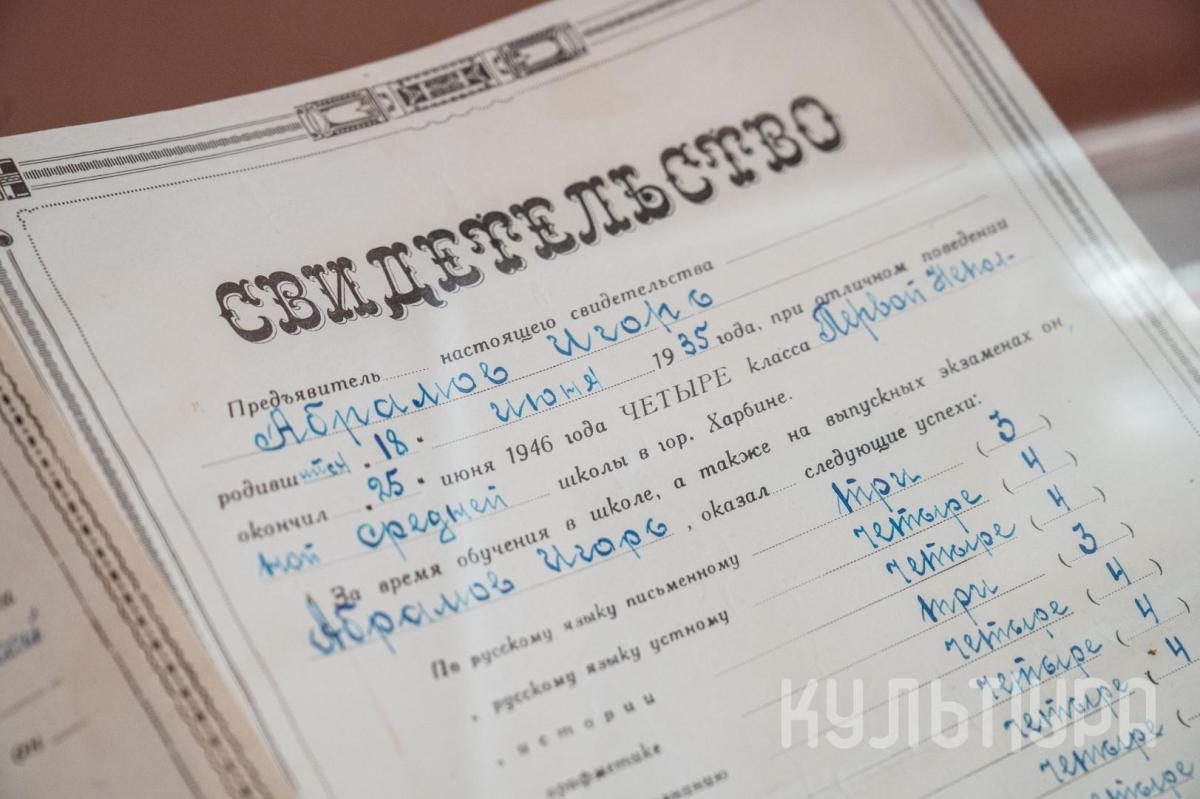 СВИДЕТЕЛЬСТВО
Предъявитель настоящего свидетельства
Абрамов Игорь
родившийся 18 июня 1935 года, при отличном поведении
окончил 25 июня 1946 года ЧЕТЫРЕ класса Первой Непол-
ной средней школы в гор. Харбине.
За время обучения в школе, а также на выпускных экзаменах он,
Абрамов Игорь, оказал следующие успехи:
По русскому языку письменному три (3)
" русскому языку устному четыре (4)
" истории четыре (4)
арифметике три (3)
четыре (4)
четыре (4)
четыре (4)
четыре (
четыре
КУЛЬТУРА